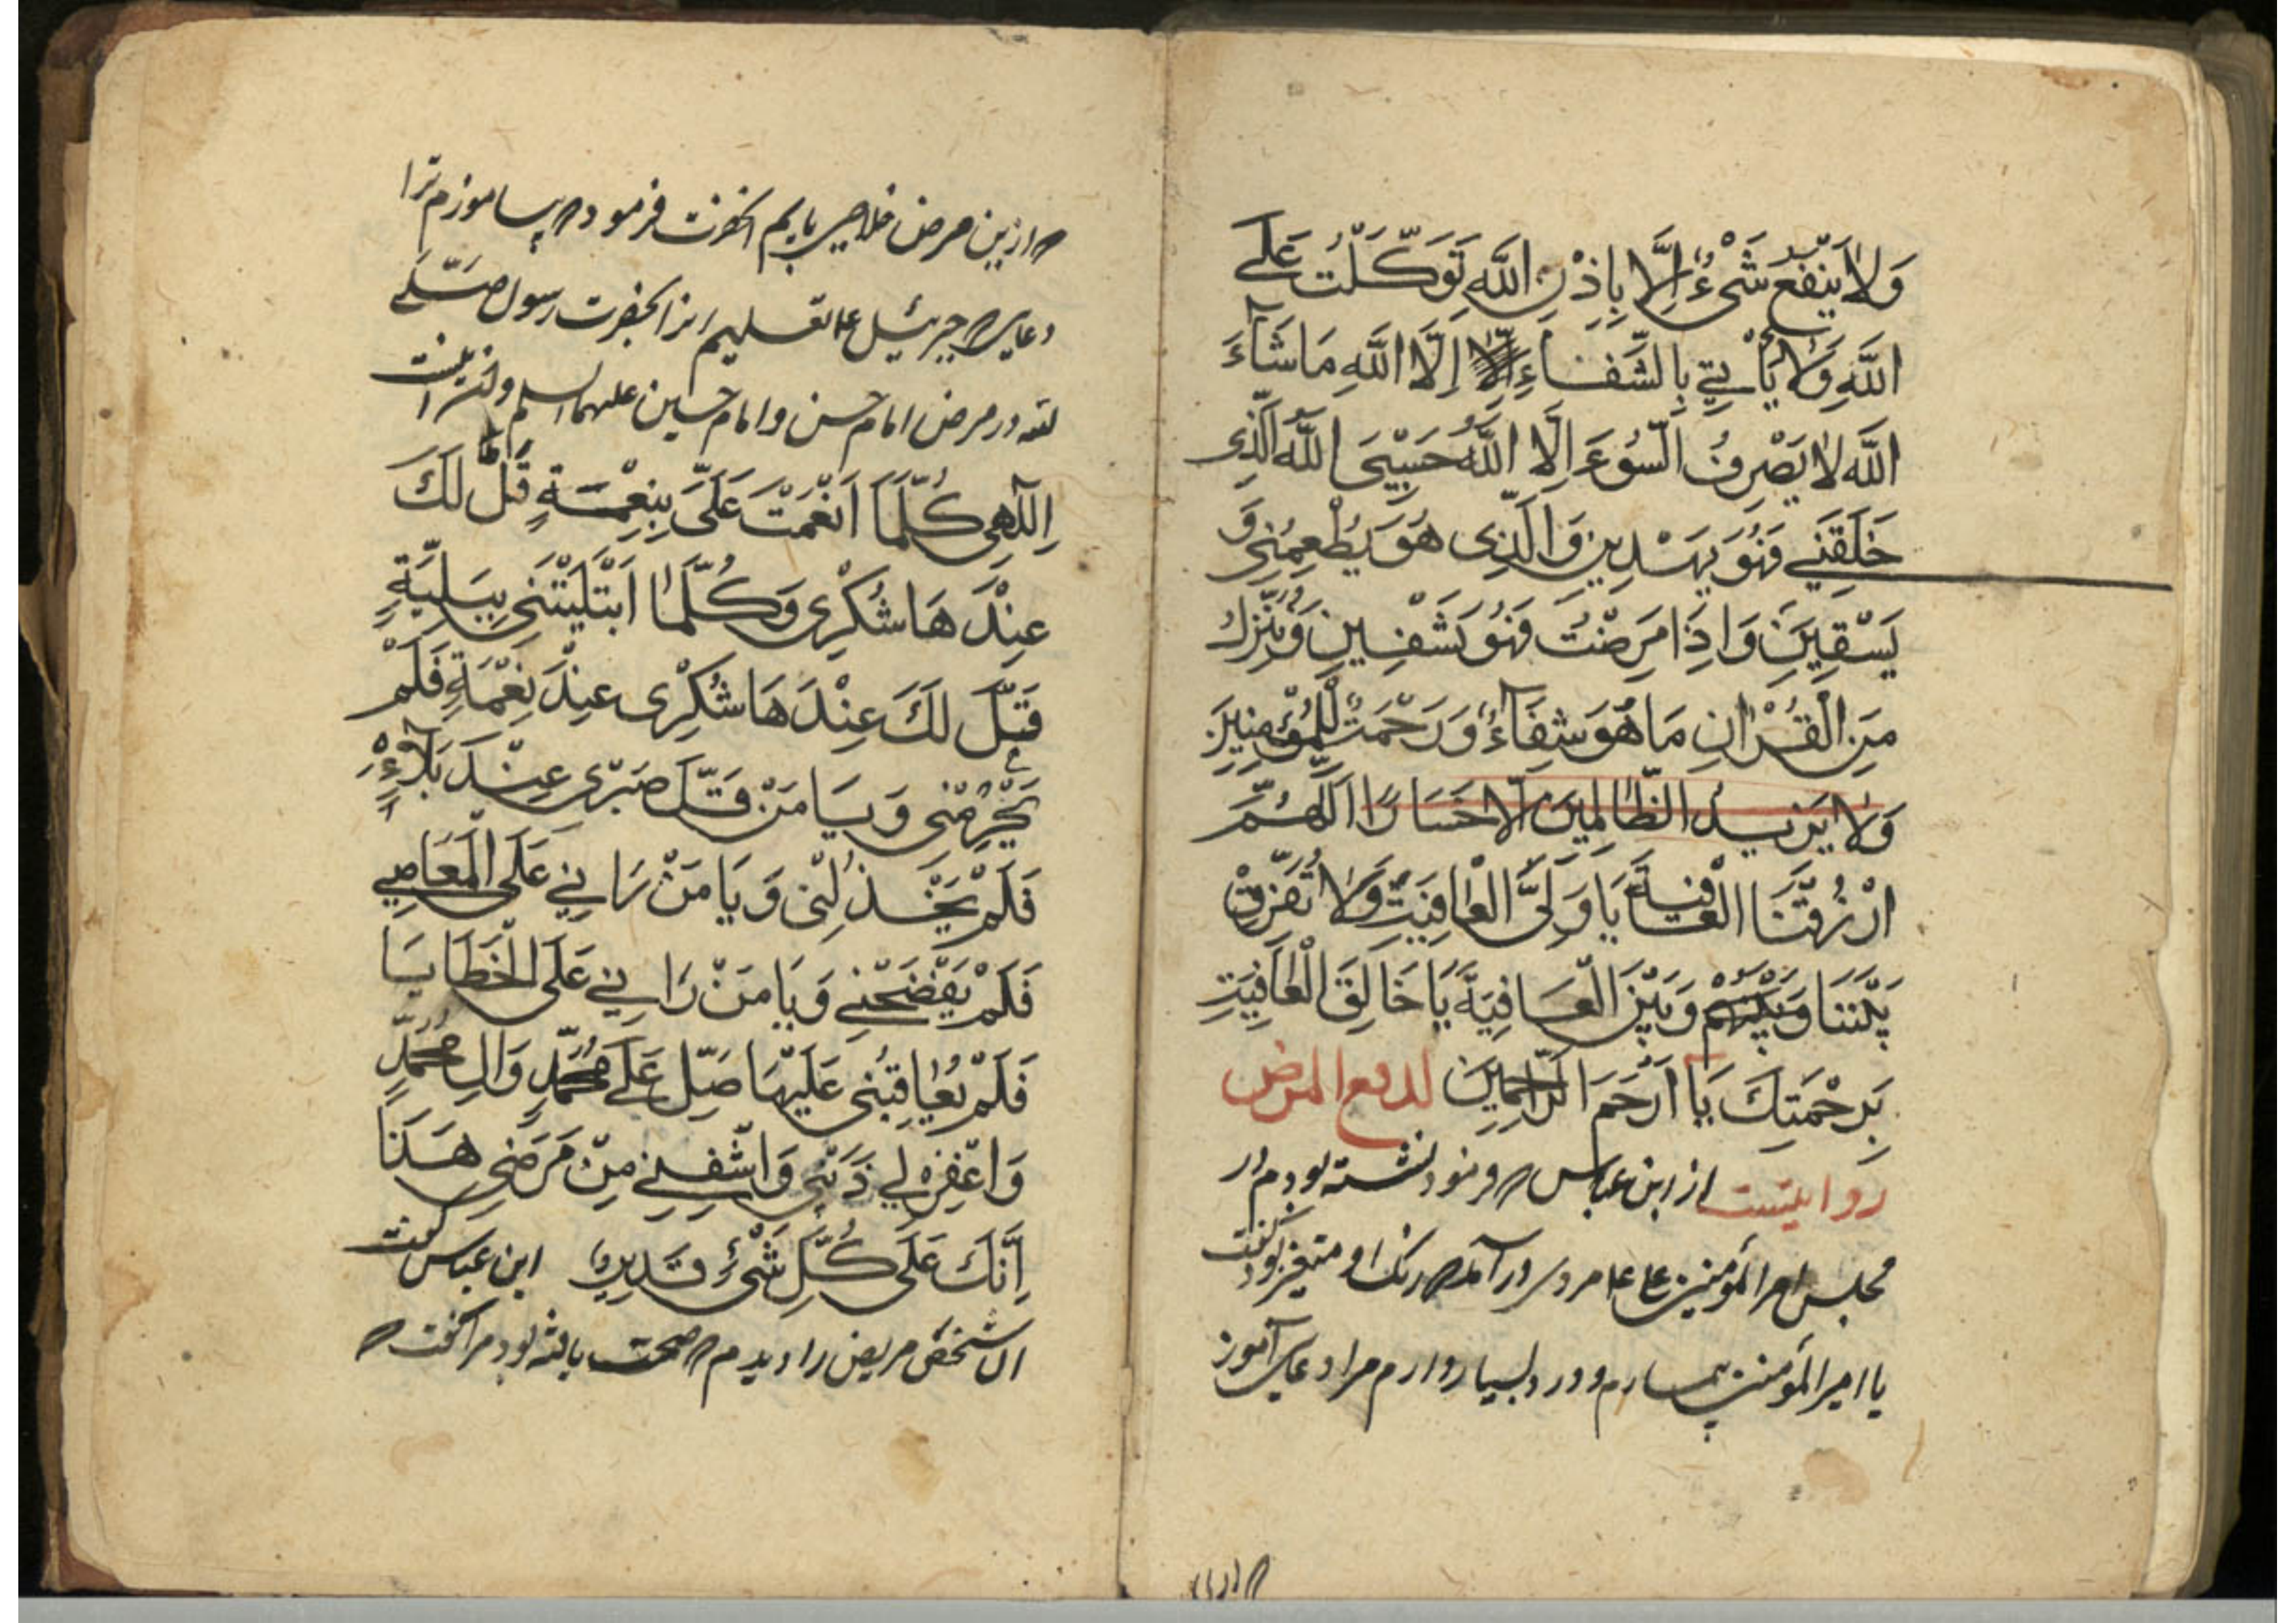 وَلَا يَنْفَعُ شَيْءٌ اِلَّا بِاِذْنِ اللّٰهِ تَوَكَّلْتُ عَلَى
اللّٰهِ وَلَا يَأْتِي بِالشِّفَاءِ اِلَّا اللّٰهِ مَا شَآءَ
اللّٰهُ لَا يَصْرِفُ السُّوءَ اِلَّا اللّٰهُ حَسْبِيَ اللّٰهُ الَّذِي
خَلَقَنِي فَهُوَ يَهْدِينِ وَالَّذِي هُوَ يُطْعِمُنِي وَ
يَسْقِينِ وَاِذَا مَرِضْتُ فَهُوَ يَشْفِينِ وَنُنَزِّلُ
مِنَ الْقُرْاٰنِ مَا هُوَ شِفَآءٌ وَرَحْمَتٌ لِلْمُؤْمِنِينَ
وَلَا يَزِيدُ الظَّالِمِينَ اِلَّا خَسَارًا اَللّٰهُمَّ
ارْزُقْنَا الْعَافِيَةَ يَا وَلِيَّ الْعَافِيَتِ وَلَا تُفَرِّقْ
بَيْنَنَا وَبَيْنَهُمْ وَبَيْنَ الْعَافِيَةِ يَا خَالِقَ الْعَافِيَتِ
بِرَحْمَتِكَ يَا اَرْحَمَ الرَّاحِمِينَ لدفع المرض
روایتست از ابن عباس که فرمود نشسته بودم در
مجلس امیر المؤمنین علی ع مردی درآمد که رنک او متغیر بود کفت
یا امیر المؤمنین بیمارم و درد بسیار دارم مرا دعای آموز
که ازین مرض خلاصی یابم انحضرت فرمود که بیاموزم ترا
دعای که جبرئیل ع تعلیم انحضرت رسول صلی
لله در مرض امام حسن و امام حسین علیهما السلم و آن اینست
اِلٰهِي كُلَّمَا اَنْعَمْتَ عَلَيَّ بِنِعْمَةٍ قَلَّ لَكَ
عِنْدَهَا شُكْرِي وَكُلَّمَا ابْتَلَيْتَنِي بِبَلِيَّةٍ
قَلَّ لَكَ عِنْدَهَا شُكْرِي عِنْدَ نِعْمَةٍ فَلَمْ
يَحْرِمْنِي وَيَا مَنْ قَلَّ صَبْرِي عِنْدَ بَلَآءِهِ
فَلَمْ يَخْذُلْنِي وَيَا مَنْ رَاٰنِي عَلَى الْمَعَاصِي
فَلَمْ يَفْضَحْنِي وَيَا مَنْ رَاٰنِي عَلَى الْخَطَايَا
فَلَمْ يُعَاقِبْنِي عَلَيْهَا صَلِّ عَلَى مُحَمَّدٍ وَاٰلِ مُحَمَّدٍ
وَاغْفِرْ لِي ذَنْبِي وَاشْفِنِي مِنْ مَرَضِي هَذَا
اِنَّكَ عَلَى كُلِّ شَيْءٍ قَدِيرٌ ابن عباس کفت
ان شخص مریض را دیدم که صحت یافته بود مرا کفت که